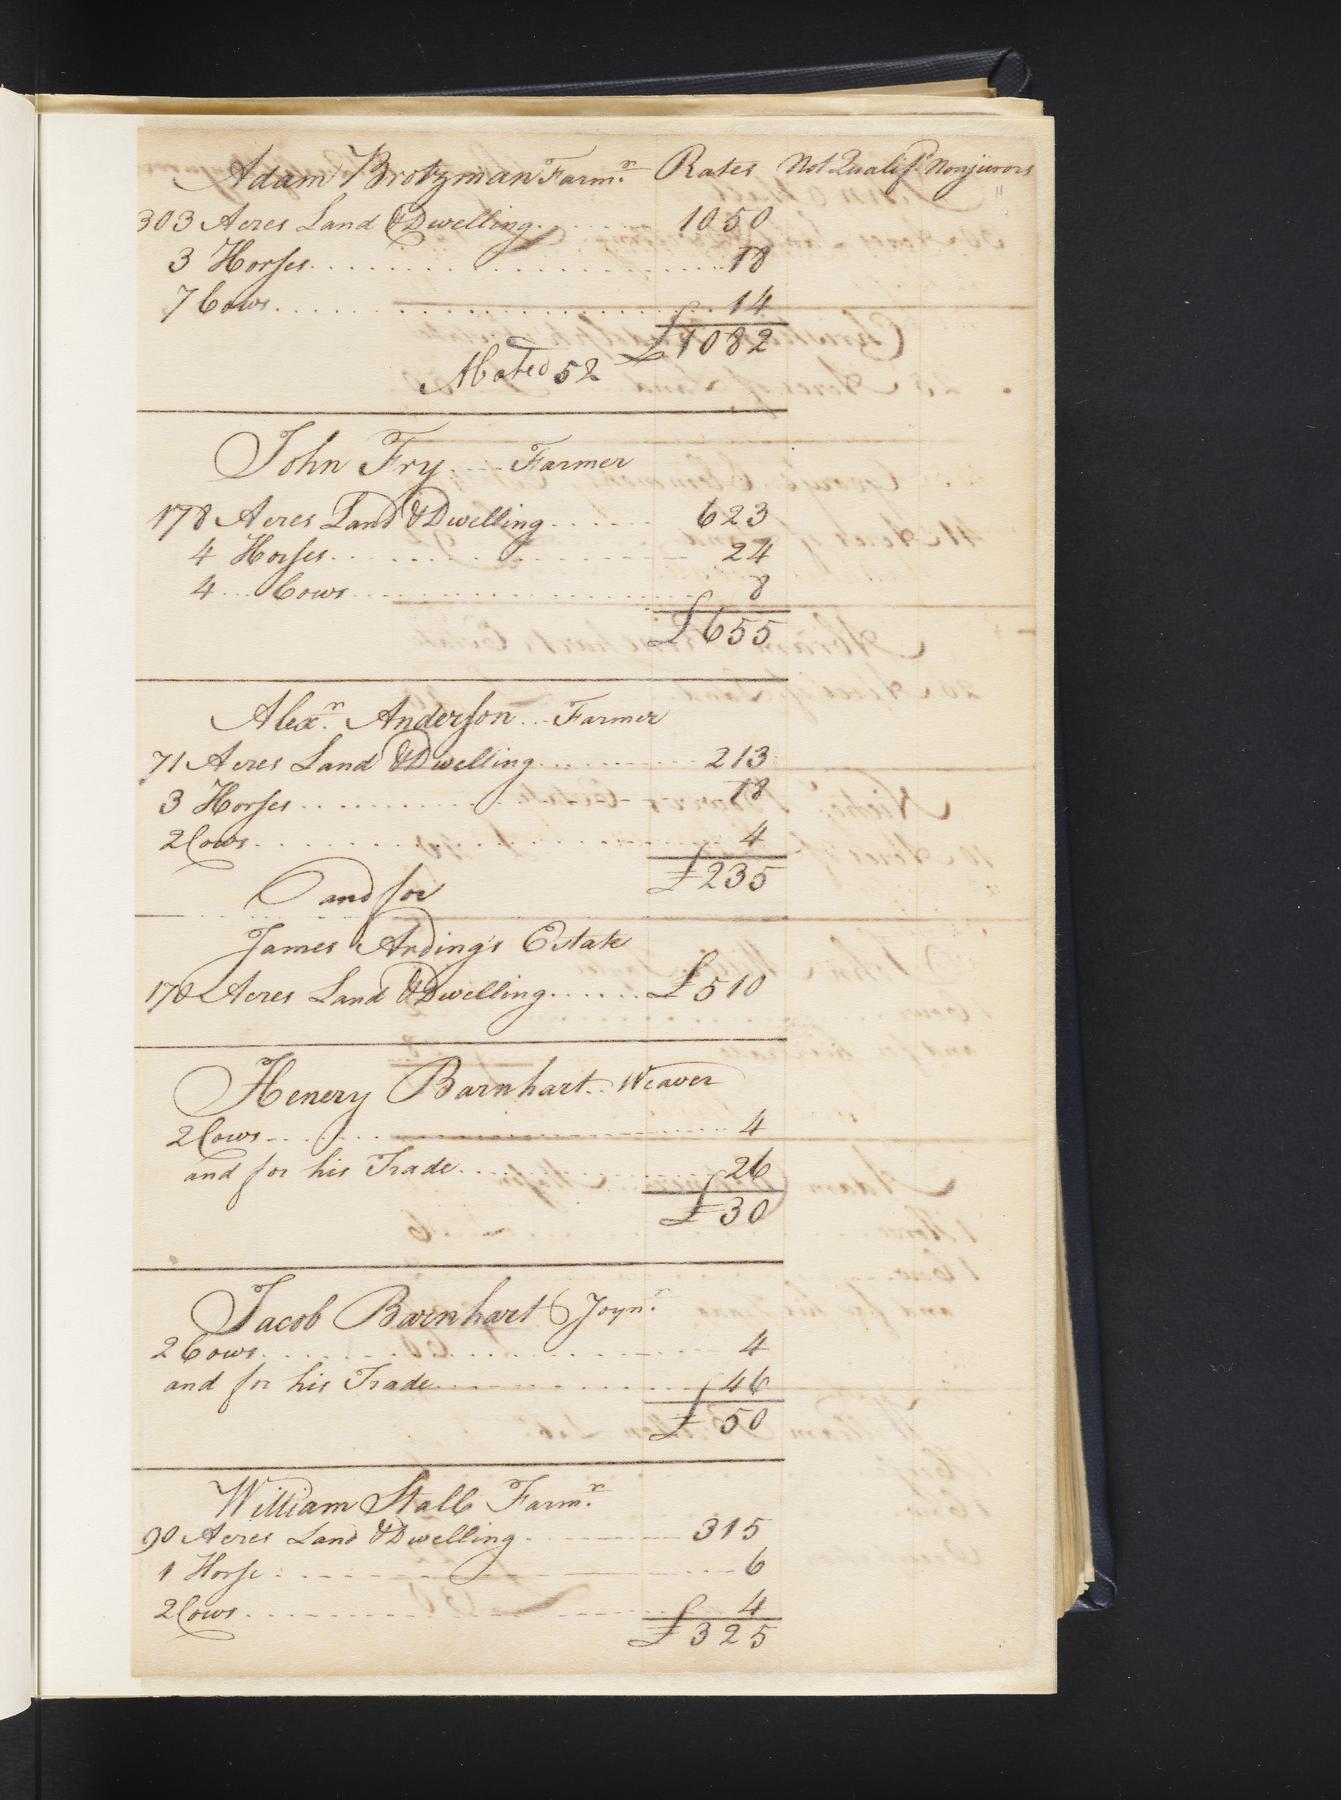 Adam Brotzman Farm.r Rates Not Qualif.d Nonjurors
303 Acres Land & Dwelling 1050
3 Horses 18
7 Cows 14
£1082
Abated 52
John Fry Farmer
178 Acres Land & Dwelling 623
4 Horses 24
4 Cows 8
£655
Alex.r Anderson Farmer
71 Acres Land & Dwelling 213
3 Horses 18
2 Cows 4
£235
and for
James Arding's Estate
170 Acres Land & Dwelling £510
Henery Barnhart Weaver
2 Cows 4
and for his Trade 26
£30
Jacob Barnhart Joyn.r
2 Cows 4
and for his Trade 46
£50
William Stall Farm.r
90 Acres Land & Dwelling 315
1 Horse 6
2 Cows 4
£325